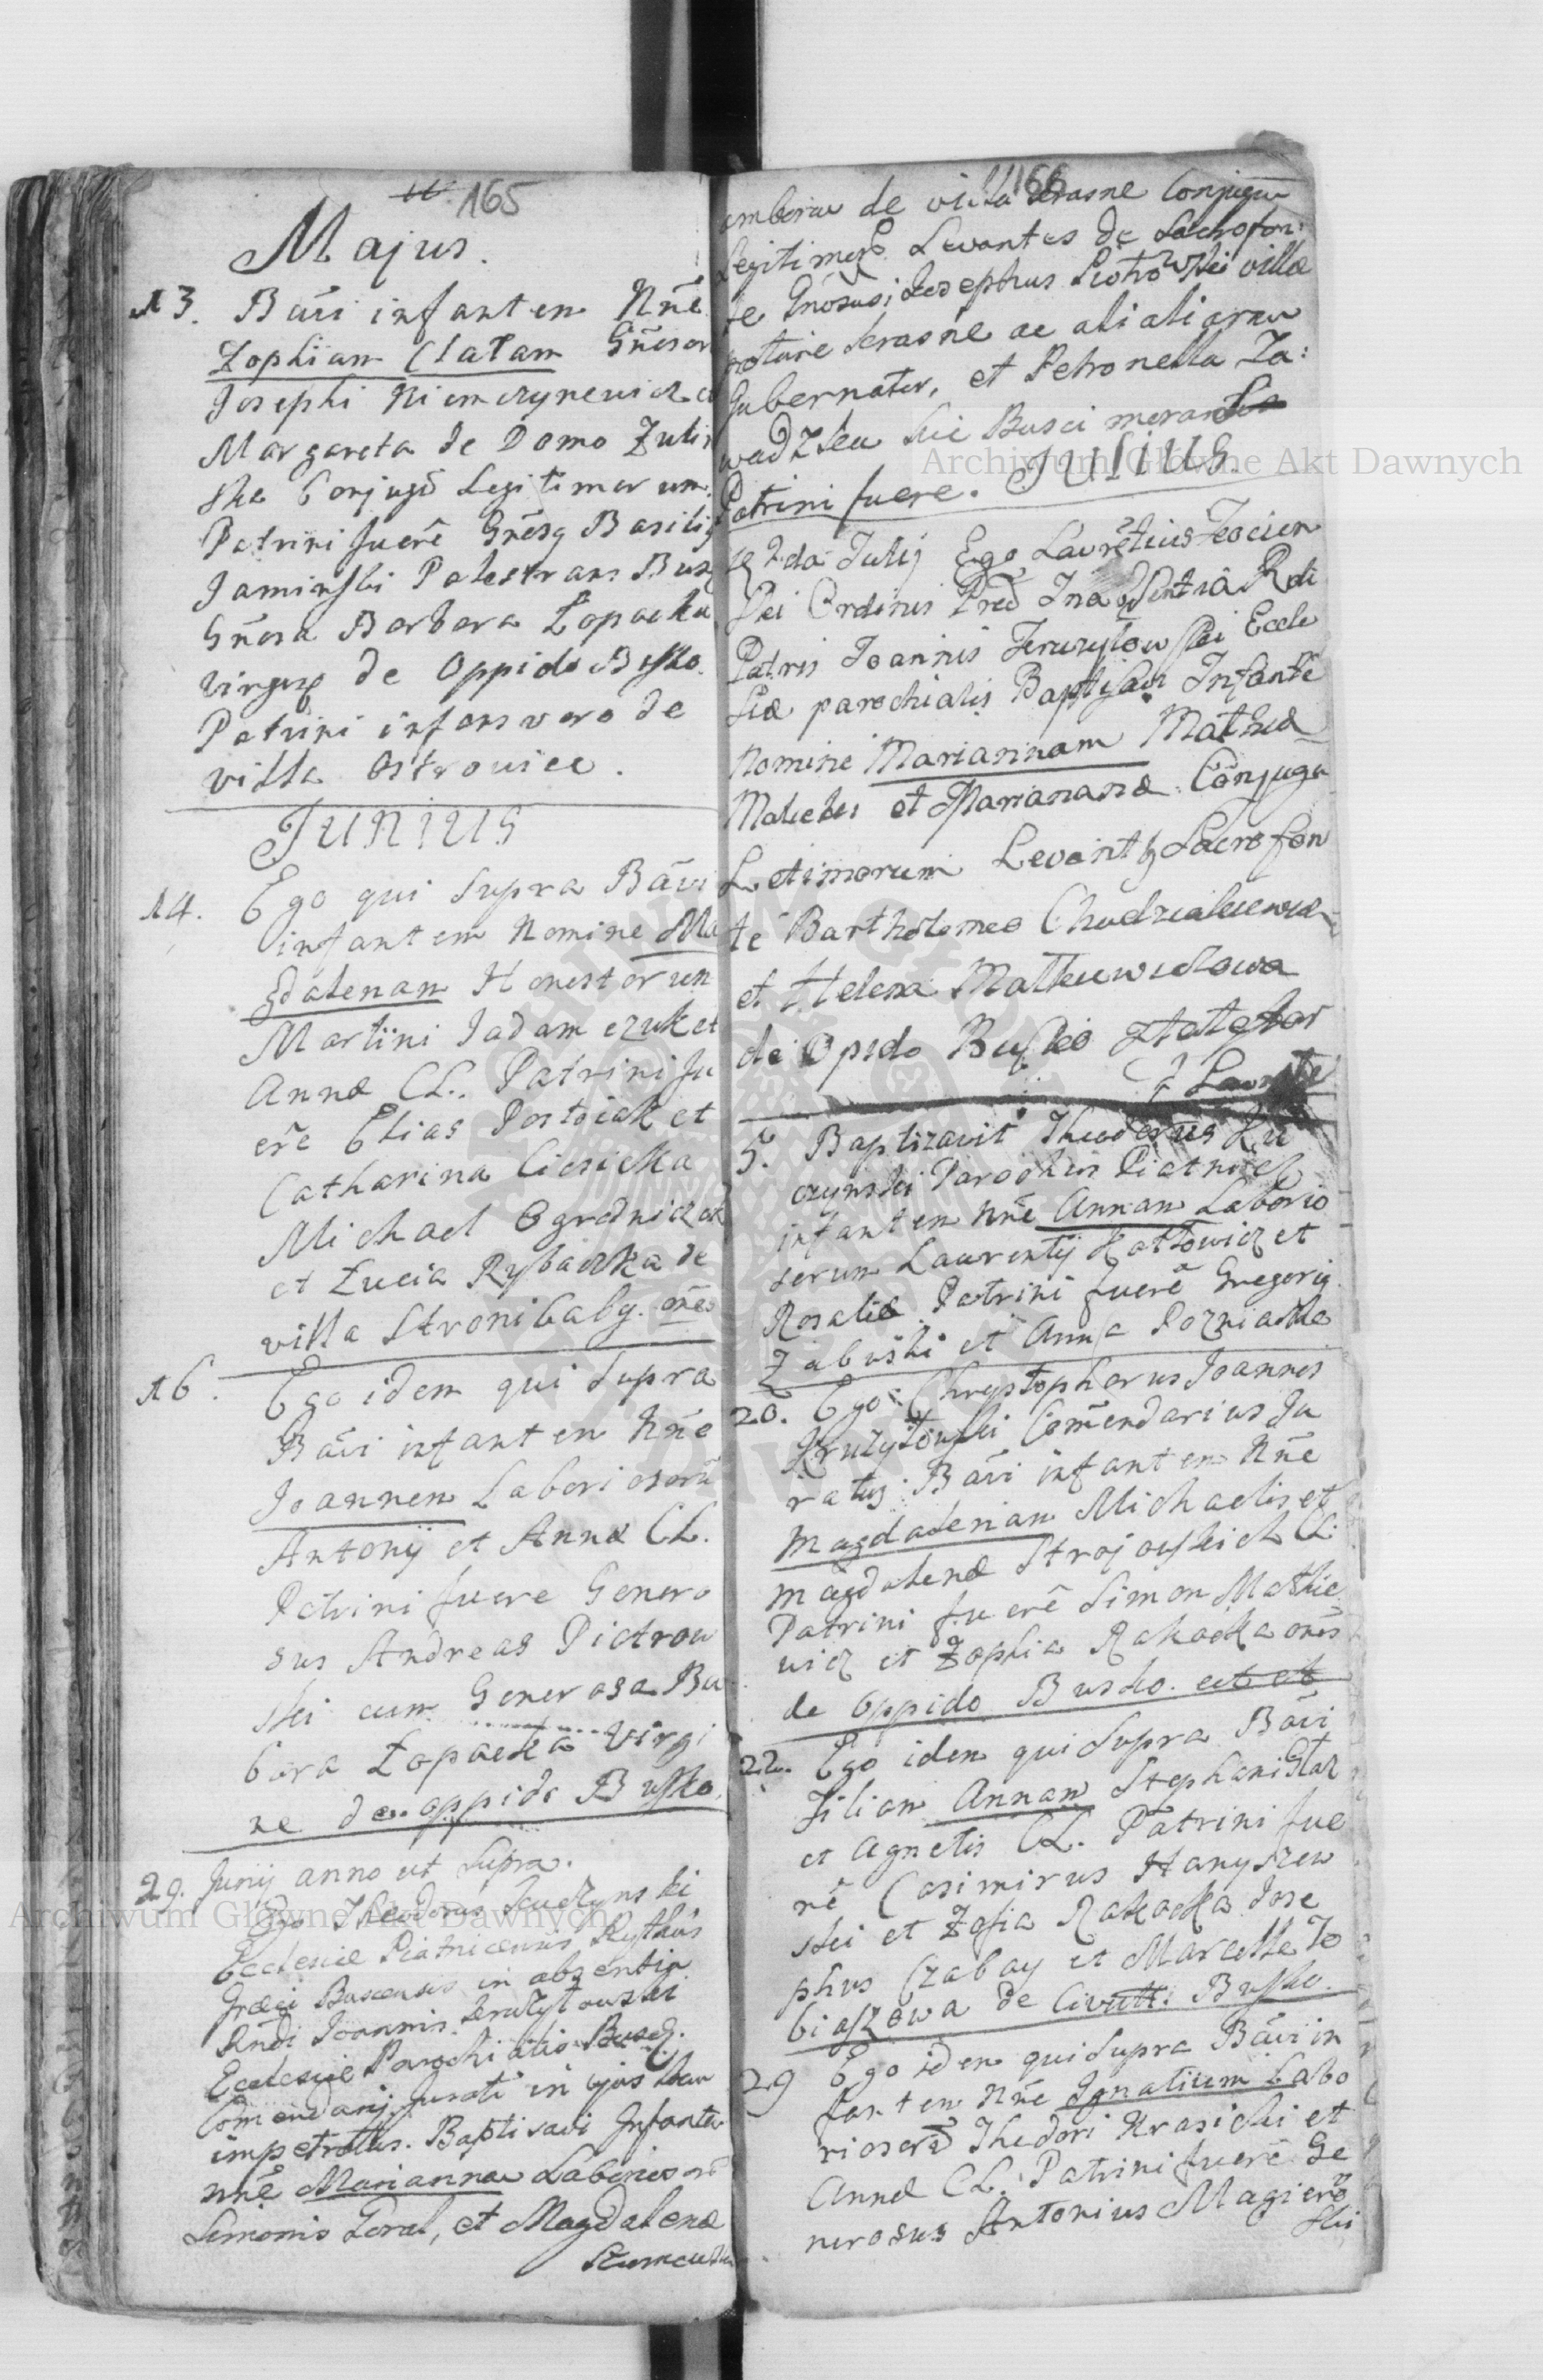 165
Majus.
13. Bāvi infantem Nñe
Zophiam Clatam Gñesor
Josephi Niemczynewicz
Margareta de Domo Zulin
ska Conjugū Legitimorum.
Patrini fuerē Gñesq Basiliq
Jaminski Palestrans Busc
Gñosa Barbara Łopacka
virgeq de Oppido Busko.
Patrini infans vero de
villa Ostrowiec.
JUNIUS
14. Ego qui supra Bāvi
infantem Nomine Ma
gdalenam Honestorum
Martini Jadamczuk et
Annæ CL. Patrini fu
ere Elias Postoiak et
Catharina Ciesicka
Michael Ogrodniczek
et Łucia Rybacka de
villa Stronibaby. oñes
16. Ego idem qui supra
Bāvi infantem Nñe
Joannem Laboriosorū
Antonij et Annæ CL.
Patrini fuere Genero
sus Andreas Piotrow
ski cum Generosa Ba
bara Łopacka virgi
ne de oppido Busko.
29. Junij anno ut supra.
Ego Theodorus Luczynski
Ecclesiæ Piatnicensis Rythus
Græci Buscensis in absentia
Rndi Joannis Kruzytowski
Ecclesiæ Parochialis Busc.
Comendarij Jurati in ejus
impetratus. Baptisavi Infantem
nñe Mariannam Laborios
Simonis Zoral, et Magdalenæ
166
de villa Krasne Conjugum
Legitimorū. Levantes de Sacrofon:
te Gnosus Josephus Piotrowski villæ
Krasne ac aliarum
Gubernator, et Petronella Za:
wadzka hic Busci
Patrini fuere. JULIUS.
2da Julij Ego Laurētius
Ordinis Præd In absentia Rdi
Patris Joannis Kruzytowski Eccle
siæ parochialis Baptisavi Infantē
Nomine Mariannam Mathæ
Malecki et Mariannæ Conjugu
Letimorum Levantq Sacrofon
te Bartholomeo Chudzialkiewicz
et Helena Matheuwiczowa
de Opido Busko
5. Baptizavit Theodorus Lu
czynski Parochus Piatnicen
infantem Nñe Annam Laborio
sorum Laurentij Kottowicz et
Rosaliæ Patrini fuerē Gregoriq
Zabuski et Anna Pozniacka
20. Ego Chrystophorus Joannes
Kruzytowski Comendarius Ju
ratus Bāvi infantem Nñe
Magdalenam Michaelis et
Magdalenæ Strojowskich CL.
Patrini fuerē Simon Mathie
wicz et Zophia Rakocka oñes
de Oppido Busko.
22. Ego idem qui supra Bāvi
Filiam Annam Stephani
et Agnetis CL. Patrini fue
rē Casimirus Hanyszew
ski et Zofia Rakocka Jose
phus Czabay et Marcella To
biaszowa de Civitt: Busko.
29 Ego idem qui supra Bāvi in
fantem Nñe Ignatium Labo
riosorū Thedori Krasicki et
Annæ CL. Patrini fuerē Ge
nerosus Antonius Magiero
ski
Archiwum Główne Akt Dawnych
Archiwum Główne Akt Dawnych